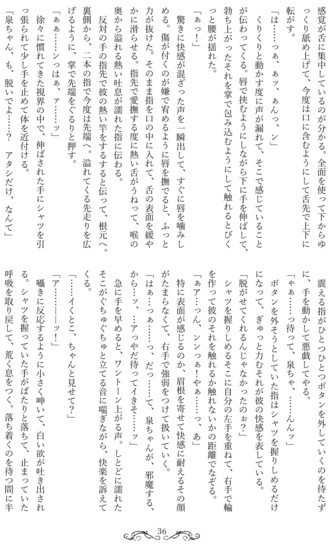 感覚が舌に集中しているのが分かる。全面を使って下からゆ
っくり舐め上げて、今度は口に含むようにして舌先で上下に
転がす。
「は……っぁ、あッ、あんっ、ン」
くりくりと動かす度に声が漏れて、そこで感じていること
が伝わってくる。唇で挟むようにしながら下に手を伸ばして、
勃ち上がったそれを掌で包み込むようにして触れるとびく
っと腰が揺れた。
「ぁっ！」
驚きに快感が混ざった声を一瞬出して、すぐに唇を噛みし
める。傷が付くのが嫌で宥めるように唇を撫でると、ふっと
力が抜けた。そのまま指を口の中に入れて、舌の表面を緩や
かに滑らせる。指先で愛撫する度に熱い舌がうねって、喉の
奥から溢れる熱い吐息が濡れた指に伝わる。
反対の手の指先で彼の熱い竿をするすると伝って、根元へ。
裏側から、二本の指で今度は先端へ。溢れてくる先走りを広
げるように、掌で先端をぐるりと押す。
「ぁぁ……ンっはぁ、ァ……ッ」
徐々に慣れてきた視界の中で、伸ばされた手にシャツを引
っ張られて少し手を止めて体を近付ける。
「泉ちゃん、も、脱いでよ……っ？　アタシだけ、なんて」
震える指がひとつひとつボタンを外していくのを待たず
に、手を動かして悪戯してやる。
「ゃぁ……っ待って、泉ちゃ、……んんッ」
ボタンを外そうとしていた指はシャツを握りしめるだけ
になって、ぎゅっと力むそれが彼の快感を表している。
「脱がせてくれるんじゃなかったのぉ？」
シャツを握りしめるそこに自分の左手を重ねて、右手で輪
を作って彼のそれを触れるか触れないかの距離でなぞる。
「なぁァ…っん、ンンっぁーやぁ……っっ、あ」
特に表面が感じるのか、眉根を寄せて快感に耐えるその顔
がたまらなくて、右手で強弱をつけて扱いていく。
「はぁ…っぁ……っ、だっ……て、泉ちゃんが、邪魔する、
から…ッ、…アっやだ待ってイきそ……ッ」
急に手を早めると、ワントーン上がる声。しとどに濡れた
そこがぐちゅぐちゅと立てる音に喘ぎながら、快楽を訴えて
くる。
「……イくとこ、ちゃんと見せて？」
「ア――――ッ！」
囁きに反応するように小さく呻いて、白い欲が吐き出され
る。シャツを握っていた手がぱたりと落ちて、止まっていた
呼吸を取り戻して、荒く息をつく。落ち着くのを待つ間に半
36